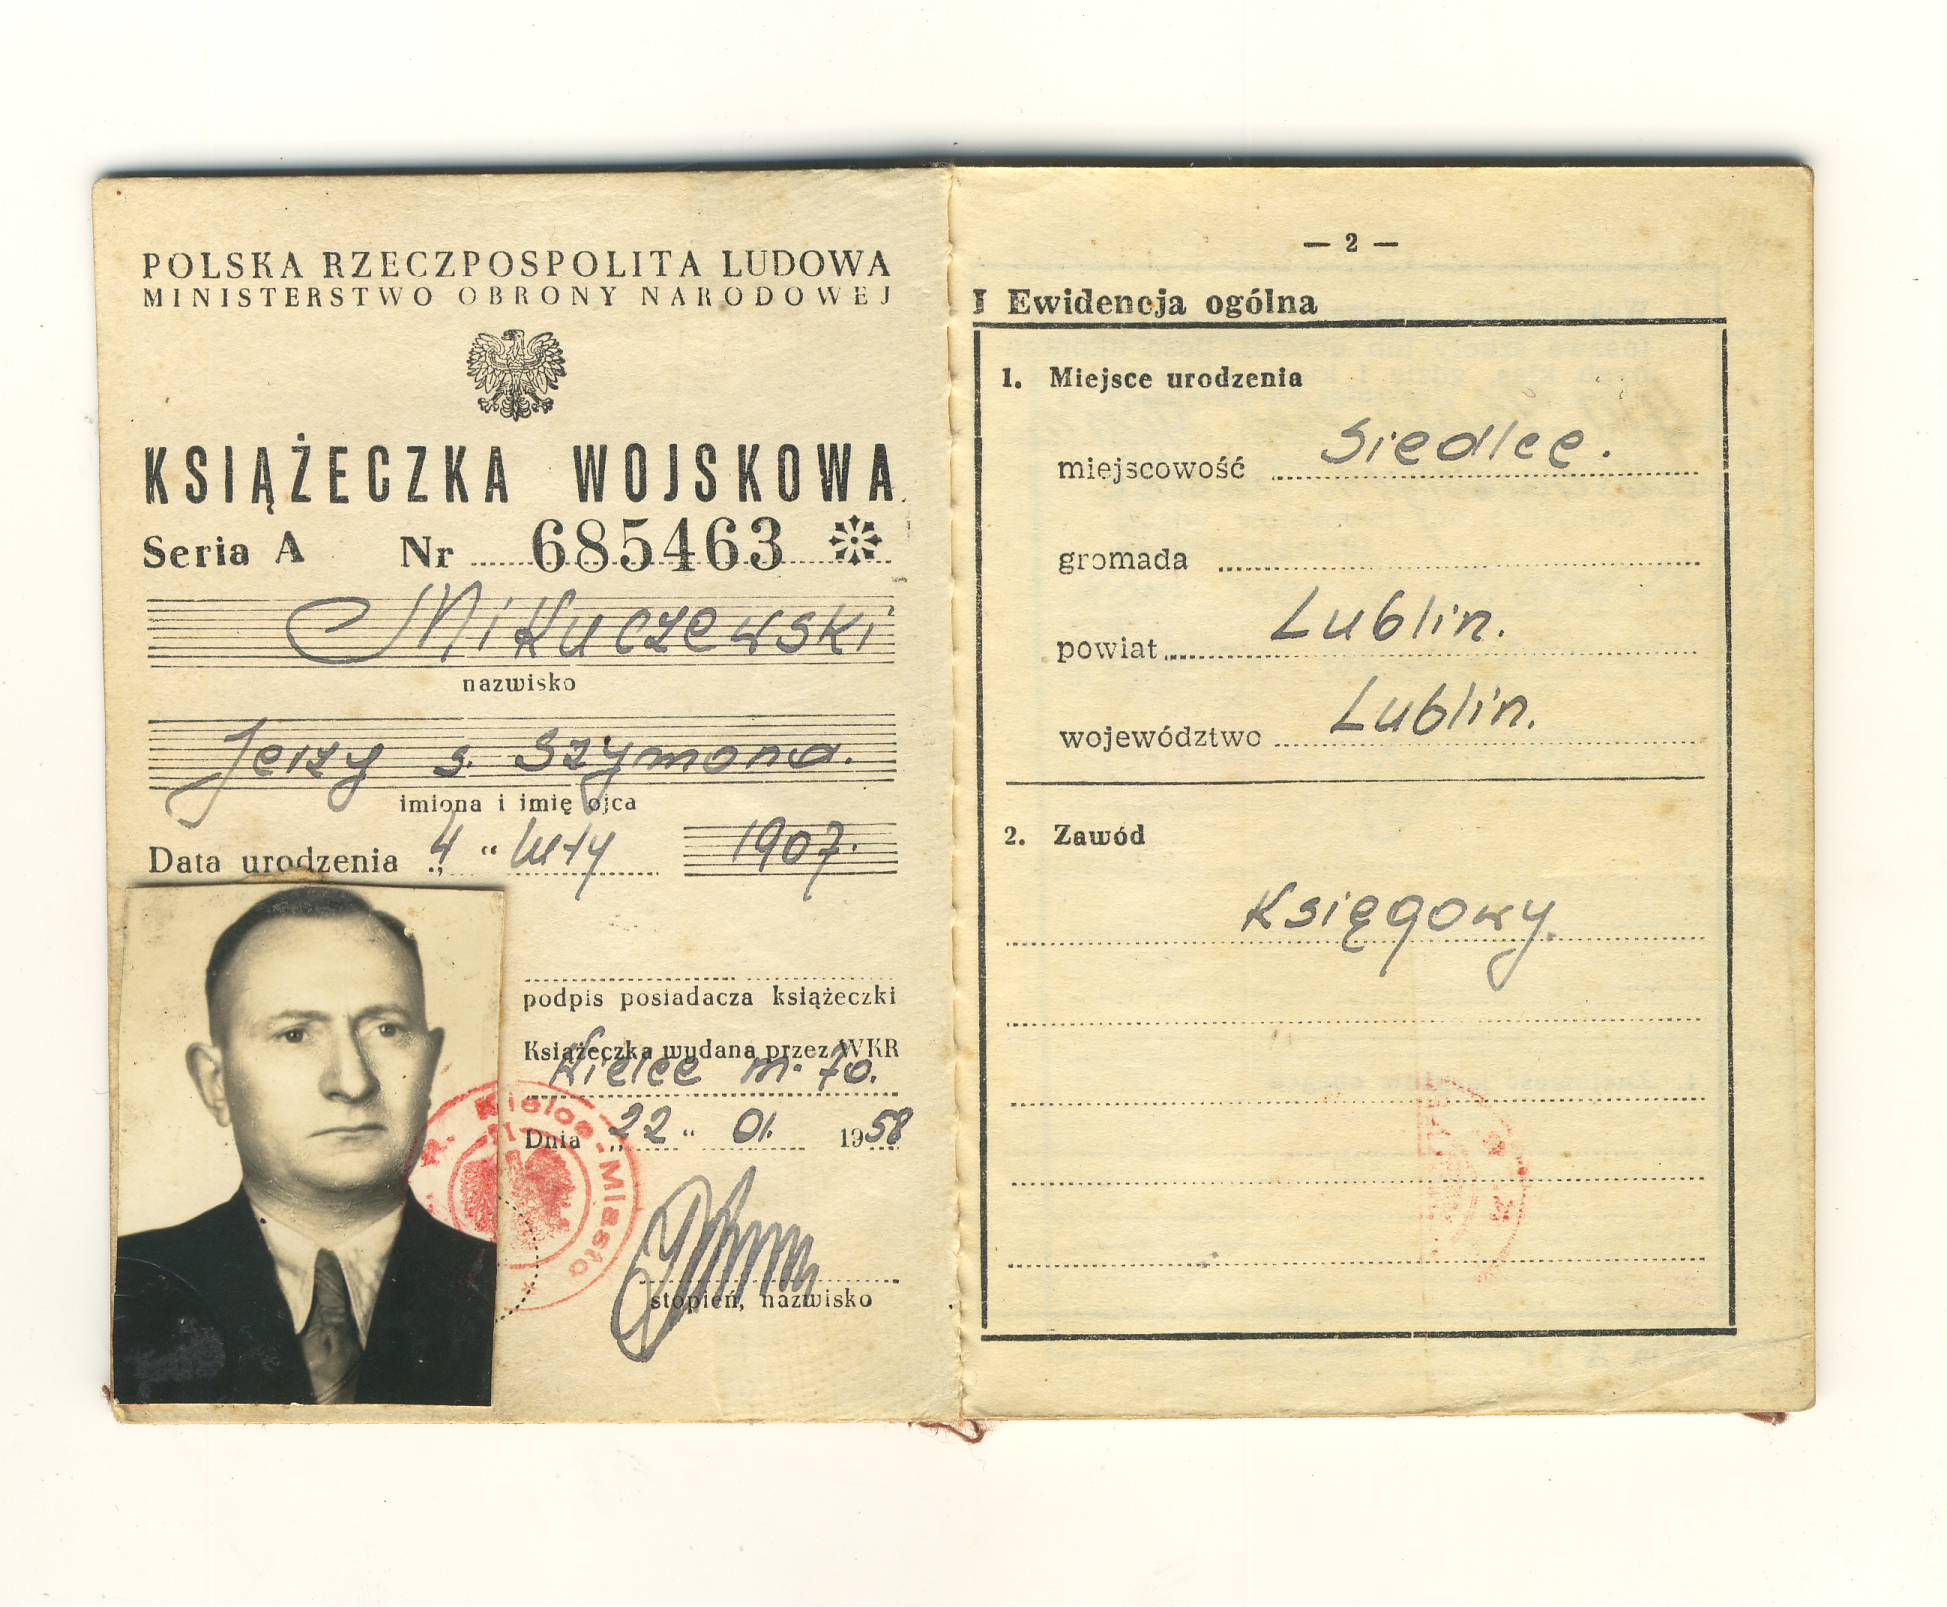 POLSKA RZECZPOSPOLITA LUDOWA
MINISTERSTWO OBRONY NARODOWEJ
KSIĄŻECZKA WOJSKOWA
Seria A Nr 685463
Mikuczewski
nazwisko
Jerzy s. Szymona.
imiona i imię ojca
Data urodzenia „4“ luty 1907.
podpis posiadacza książeczki
Książeczka wydana przez WKR
Kielce m.
Dnia „22“ 01. 1958
Kielce-Miasto
stopień, nazwisko
— 2 —
I Ewidencja ogólna
1. Miejsce urodzenia
miejscowość Siedlce.
gromada
powiat Lublin.
województwo Lublin.
2. Zawód
Księgowy.